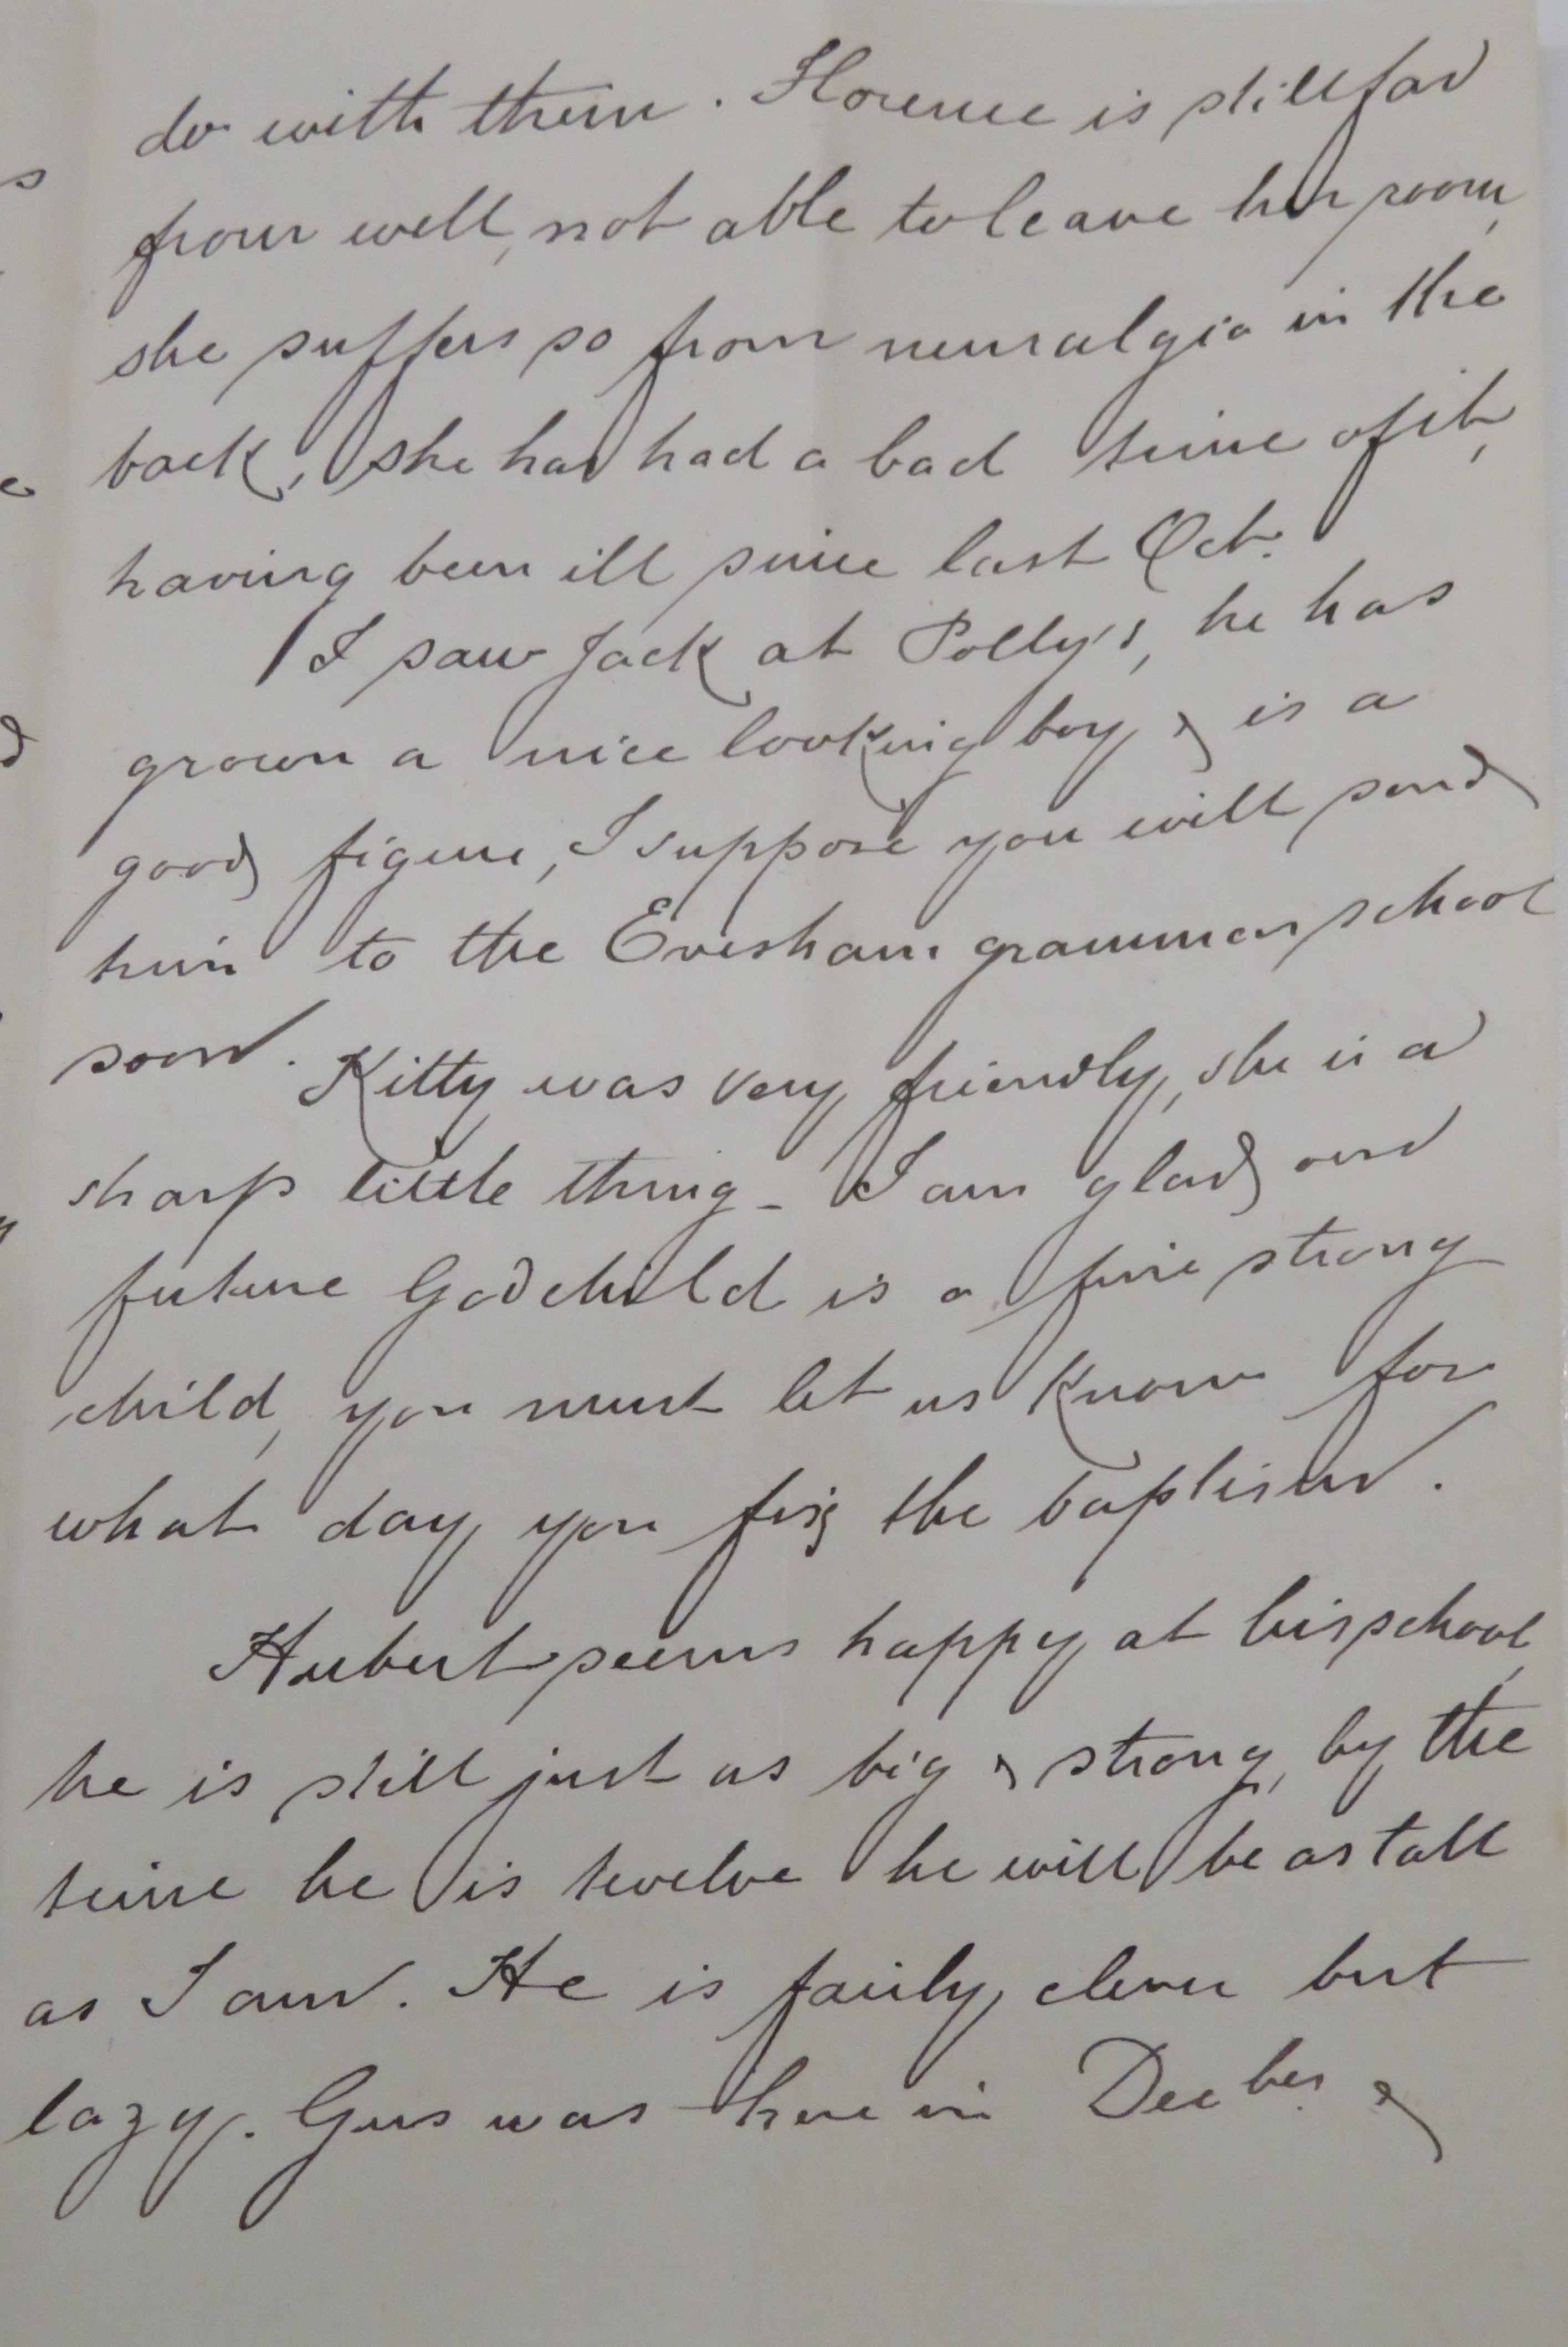 do with them. Florence is still far
from well, not able to leave her room,
she suffers so from neuralgia in the
back, she has had a bad time of it,
having been ill since last Oct.
I saw Jack at Polly's, he has
grown a nice looking boy, & is a
good figure, I suppose you will send
him to the Evesham grammar school
soon. Kitty was very friendly, she is a
sharp little thing - I am glad our
future Godchild is a fine strong
child, you must let us know for
what day you fix the baptism.
Hubert seems happy at his school,
he is still just as big & strong, by the
time he is twelve he will be as tall
as I am. He is fairly clever but
lazy. Gus was here in Decber. &